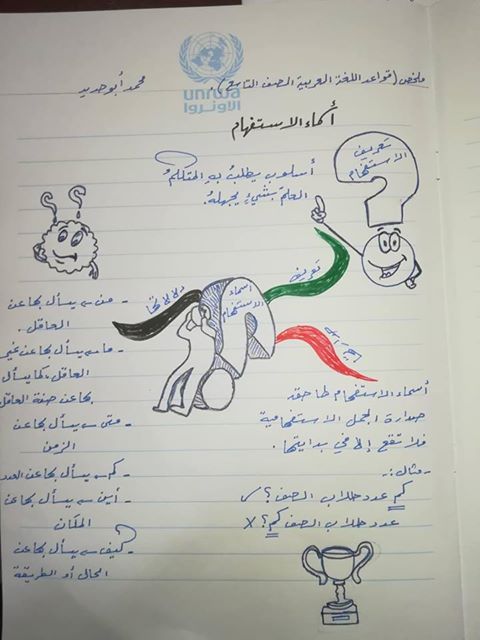 unrwa
الأونروا
ملخص (قواعد اللغة العربية الصف التاسع).
محمد أبو حديد
أسماء الاستفهام
تعريف
الاستفهام
أسلوب يطلبُ بهِ المتكلمُ
العلمَ بشيءٍ يجهلهُ.
تعريف
أسماء
الاستفهام
دلالاتها
أسماء الاستفهام لها حق
صدارة الجمل الاستفهامية
فلا تقع إلا في بدايتها.
- مثال:-
كم عدد طلاب الصف؟ ✓
عدد طلاب الصف كم؟ X
- من ← يسأل بها عن
العاقل.
- ما ← يسأل بها عن غير
العاقل، كما يسأل
بها عن صفة العاقل
- متى ← يسأل بها عن
الزمن
- كم ← يسأل بها عن العدد
- أين ← يسأل بها عن
المكان
- كيف ← يسأل بها عن
الحال أو الطريقة